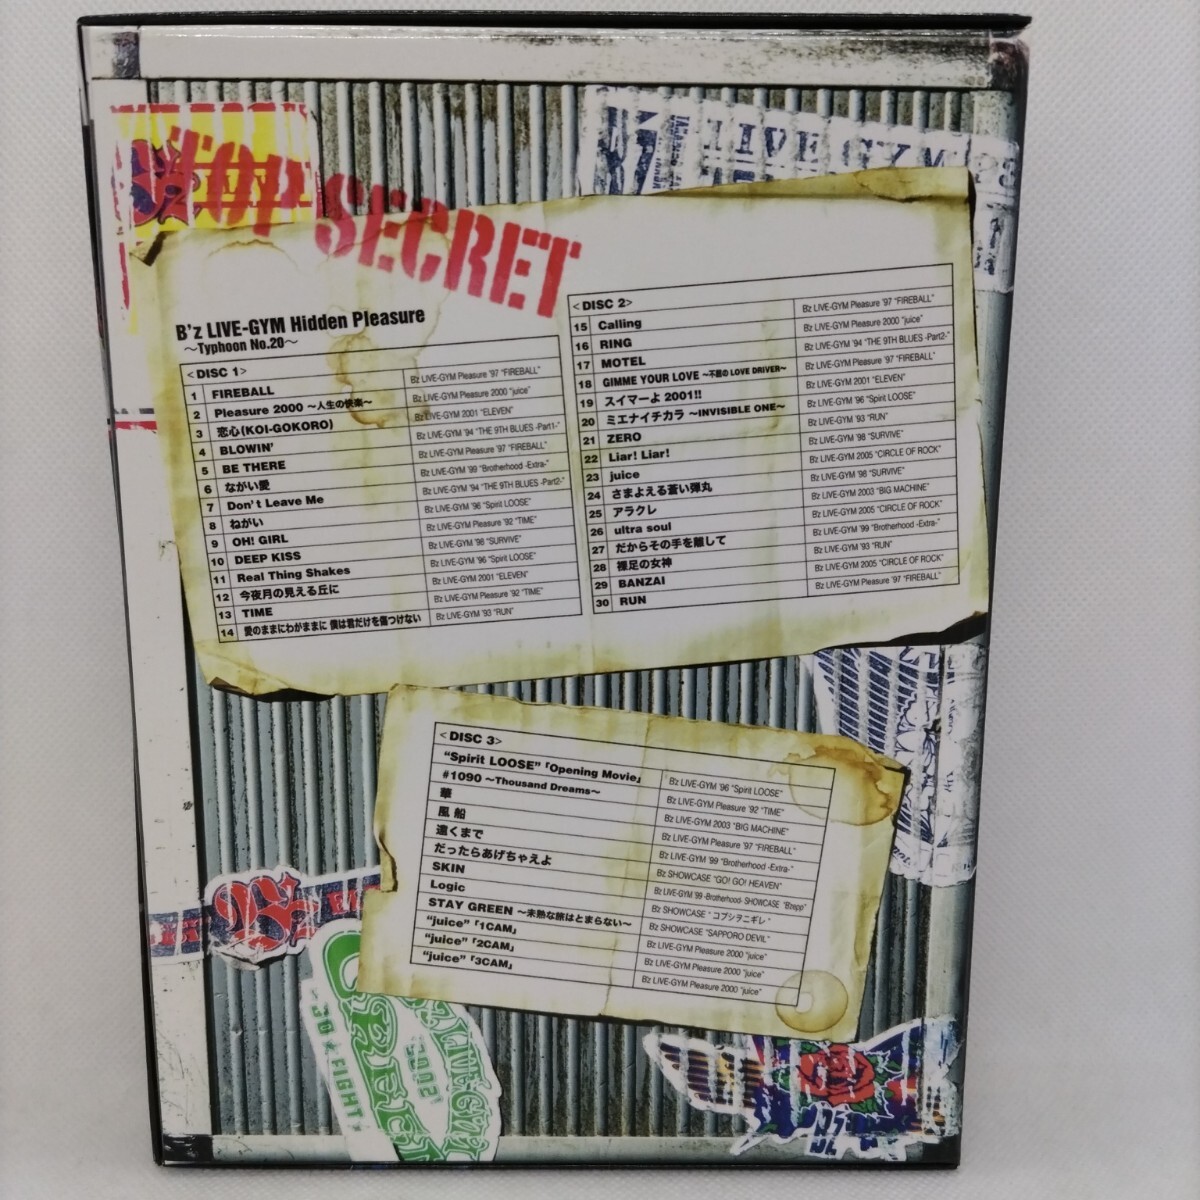 TOP SECRET
LIVE GYM
B'z LIVE-GYM Hidden Pleasure
～Typhoon No.20～
<DISC 1>
1 FIREBALL B'z LIVE-GYM Pleasure '97 "FIREBALL"
2 Pleasure 2000 ～人生の快楽～ B'z LIVE-GYM Pleasure 2000 "juice"
3 恋心(KOI-GOKORO) B'z LIVE-GYM 2001 "ELEVEN"
4 BLOWIN' B'z LIVE-GYM '94 "THE 9TH BLUES -Part1-"
5 BE THERE B'z LIVE-GYM Pleasure '97 "FIREBALL"
6 ながい愛 B'z LIVE-GYM '99 "Brotherhood -Extra-"
7 Don't Leave Me B'z LIVE-GYM '94 "THE 9TH BLUES -Part2-"
8 ねがい B'z LIVE-GYM '96 "Spirit LOOSE"
9 OH! GIRL B'z LIVE-GYM Pleasure '92 "TIME"
10 DEEP KISS B'z LIVE-GYM '98 "SURVIVE"
11 Real Thing Shakes B'z LIVE-GYM '96 "Spirit LOOSE"
12 今夜月の見える丘に B'z LIVE-GYM 2001 "ELEVEN"
13 TIME B'z LIVE-GYM Pleasure '92 "TIME"
14 愛のままにわがままに 僕は君だけを傷つけない B'z LIVE-GYM '93 "RUN"
<DISC 2>
15 Calling B'z LIVE-GYM Pleasure '97 "FIREBALL"
16 RING B'z LIVE-GYM Pleasure 2000 "juice"
17 MOTEL B'z LIVE-GYM '94 "THE 9TH BLUES -Part2-"
18 GIMME YOUR LOVE ～不屈のLOVE DRIVER～ B'z LIVE-GYM Pleasure '97 "FIREBALL"
19 スイマーよ 2001!! B'z LIVE-GYM 2001 "ELEVEN"
20 ミエナイチカラ ～INVISIBLE ONE～ B'z LIVE-GYM '96 "Spirit LOOSE"
21 ZERO B'z LIVE-GYM '93 "RUN"
22 Liar! Liar! B'z LIVE-GYM '98 "SURVIVE"
23 juice B'z LIVE-GYM 2005 "CIRCLE OF ROCK"
24 さまよえる蒼い弾丸 B'z LIVE-GYM '98 "SURVIVE"
25 アラクレ B'z LIVE-GYM 2003 "BIG MACHINE"
26 ultra soul B'z LIVE-GYM 2005 "CIRCLE OF ROCK"
27 だからその手を離して B'z LIVE-GYM '99 "Brotherhood -Extra-"
28 裸足の女神 B'z LIVE-GYM '93 "RUN"
29 BANZAI B'z LIVE-GYM 2005 "CIRCLE OF ROCK"
30 RUN B'z LIVE-GYM Pleasure '97 "FIREBALL"
<DISC 3>
"Spirit LOOSE"「Opening Movie」 B'z LIVE-GYM '96 "Spirit LOOSE"
#1090 ～Thousand Dreams～ B'z LIVE-GYM Pleasure '92 "TIME"
華 B'z LIVE-GYM 2003 "BIG MACHINE"
風船 B'z LIVE-GYM Pleasure '97 "FIREBALL"
遠くまで B'z LIVE-GYM '99 "Brotherhood -Extra-"
だったらあげちゃえよ B'z SHOWCASE "GO! GO! HEAVEN"
SKIN B'z LIVE-GYM '99 -Brotherhood- SHOWCASE "Bzepp"
Logic B'z SHOWCASE "コブシヲニギレ"
STAY GREEN ～未熟な旅はとまらない～ B'z SHOWCASE "SAPPORO DEVIL"
"juice"「1CAM」 B'z LIVE-GYM Pleasure 2000 "juice"
"juice"「2CAM」 B'z LIVE-GYM Pleasure 2000 "juice"
"juice"「3CAM」 B'z LIVE-GYM Pleasure 2000 "juice"
FIGHT
2001
B'z